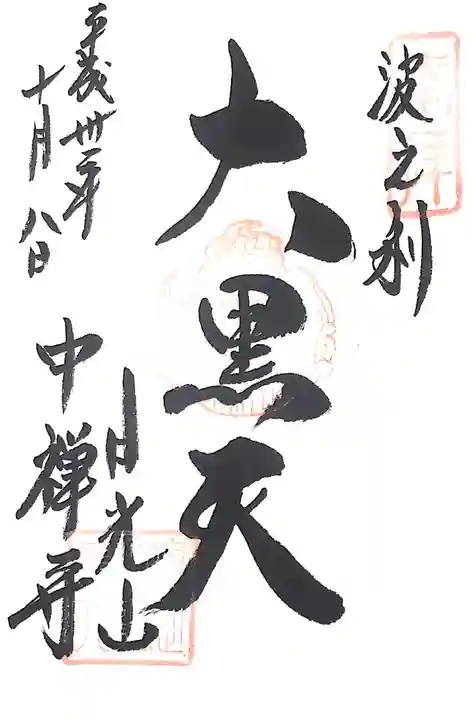 波之利
大黒天
日光山
中禅寺
平成卅年
十月八日